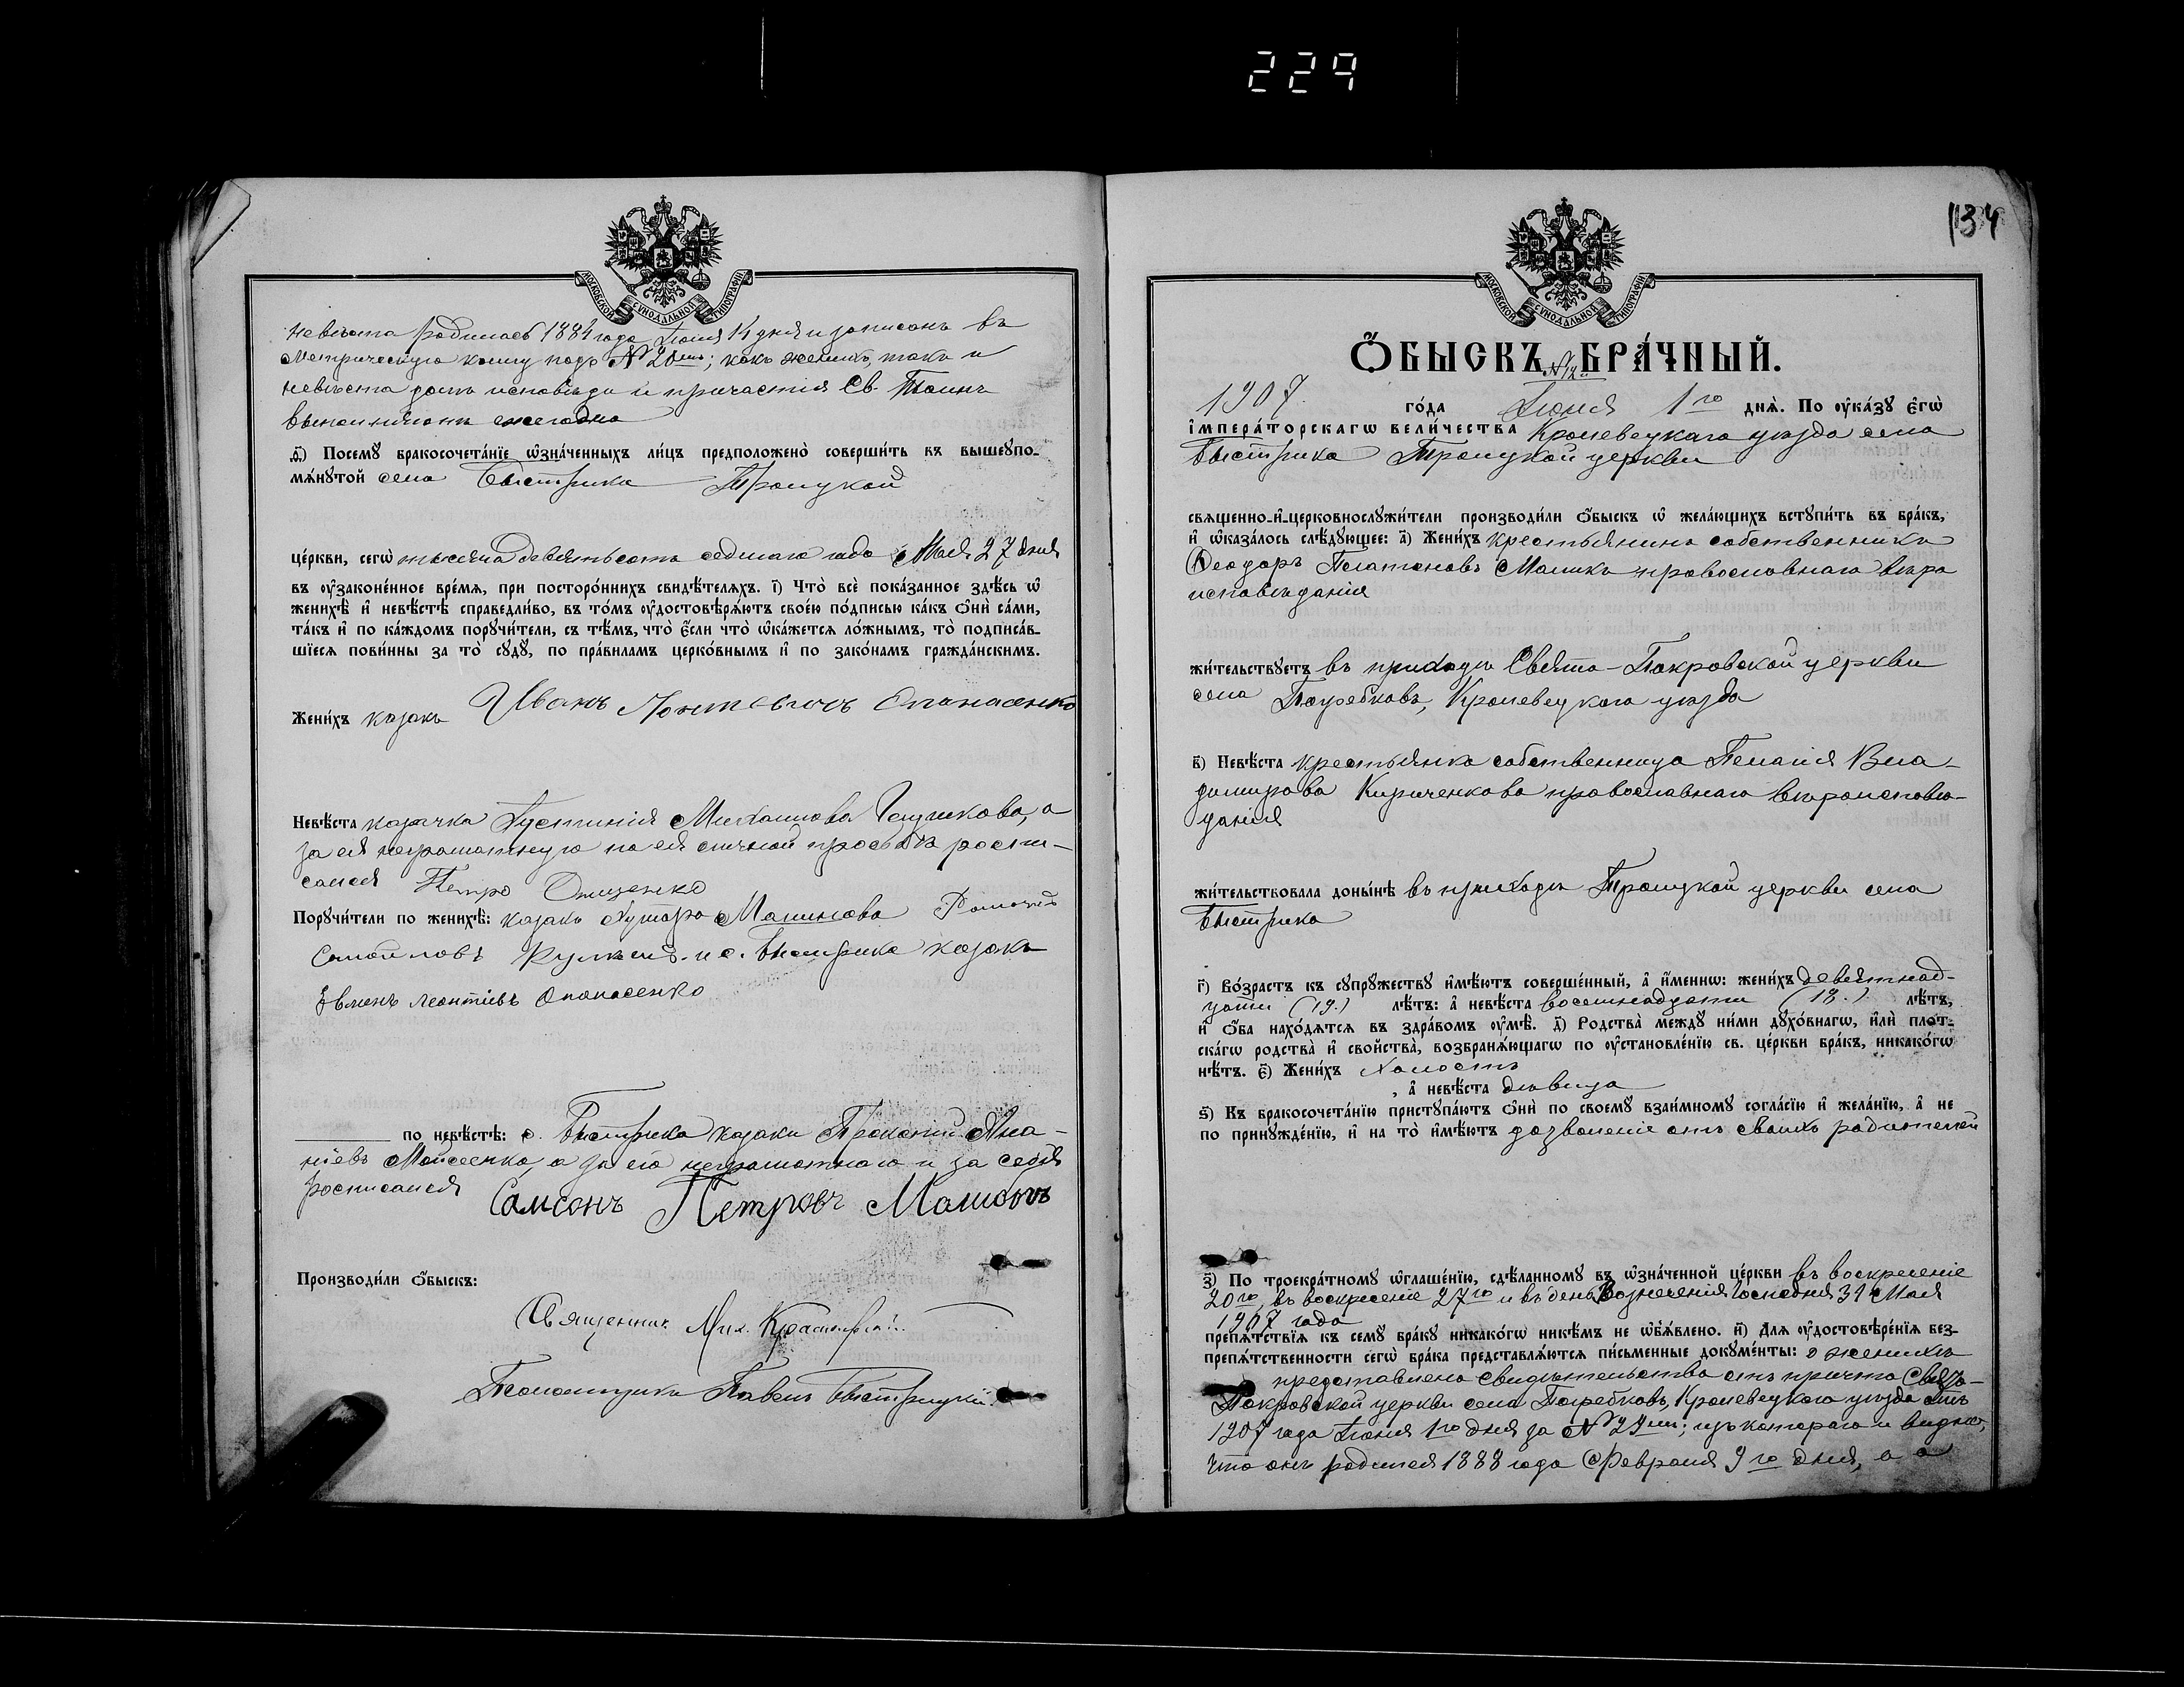 229
МОСКОВСКОЙ СУНОДАЛЬНОЙ ТИПОГРАФІИ
невѣста родилась 1884 года Іюня 14 дня и записана въ
Метрическую книгу подъ № 20мъ; какъ женихъ, такъ и
невѣста долгъ исповѣди и причастія Св. Таинъ
выполняютъ ежегодно
ѳ҃) Посемꙋ̀ бракосочета́нїе ѡ҆зна́ченныхъ ли́цъ предположено̀ соверши́ть въ вышеꙋпо-
мѧ́нꙋтой села Быстрика Троицкой
це́ркви, сегѡ̀ тысяча девятьсотъ седмаго года Мая 27 дня
въ ᲂу҆законе́нное вре́мѧ, при посторо́ннихъ свидѣ́телѧхъ. і҃) Что̀ всѐ пока́занное здѣ́сь ѡ҆
женихѣ̀ и҆ невѣ́стѣ справедли́во, въ то́мъ ᲂу҆достовѣрѧ́ютъ свое́ю по́дписью ка́къ ѻ҆нѝ са́ми,
та́къ и҆ по ка́ждомъ порꙋчи́тели, съ тѣ́мъ, что̀ є҆́сли что̀ ѡ҆ка́жетсѧ ло́жнымъ, то̀ подписа́в-
шїесѧ пови́нны за то̀ сꙋдꙋ̀, по пра́виламъ церко́внымъ и҆ по зако́намъ гражда́нскимъ.
Жени́хъ казакъ Иванъ Опанасенко
Невѣ́ста казачка Іустинія Михаилова а
за ея неграмотную по ея личной просьбѣ роспи-
сался Петро Онищенко
Порꙋчи́тели по женихѣ̀: казакъ хутора
Самойловъ и с. Быстрика казакъ
Леонтіевъ Опанасенко
по невѣ́стѣ: с. Быстрика казаки Ана-
ніевъ Мойсеенко, а за его неграмотнаго и за себя
росписался Самсонъ Петровъ
Производи́ли ѻ҆́быскъ:
Священникъ Мих.
Псаломщикъ Павелъ Быстрицкій
134
МОСКОВСКОЙ СУНОДАЛЬНОЙ ТИПОГРАФІИ
Ѻ҆́БЫСКЪ БРА́ЧНЫЙ.
№ 12
1907. го́да Іюня 1го днѧ̀. По ᲂу҆ка́зꙋ є҆гѡ̀
і҆мпера́торскагѡ вели́чества Кролевецкаго уѣзда села
Быстрика Троицкой церкви
свѧщенно-и҆-церковнослꙋжи́тели производи́ли ѻ҆́быскъ ѡ҆ жела́ющихъ встꙋпи́ть въ бра́къ,
и҆ ѡ҆каза́лось слѣ́дꙋющее: а҃) Жени́хъ крестьянинъ собственникъ
Ѳеодоръ Платоновъ Маликъ православнаго вѣро
исповѣданія
жи́тельствꙋетъ въ приходѣ Свято-Покровской церкви
села Погребковъ, Кролевецкаго уѣзда
в҃) Невѣ́ста крестьянка собственница Пелагія Вла-
димирова Кириченкова православнаго вѣроисповѣ-
данія
жи́тельствовала донынѣ въ приходѣ Троицкой церкви села
Быстрика
г҃) Во́зрастъ къ сꙋпрꙋ́жествꙋ и҆мѣ́ютъ соверше́нный, а҆ и҆́меннѡ: жени́хъ девятнад-
цати (19.) лѣ́тъ: а҆ невѣ́ста восемнадцати (18.) лѣ́тъ,
и҆ ѻ҆́ба нахо́дѧтсѧ въ здра́вомъ ᲂу҆мѣ̀. д҃) Родства̀ междꙋ̀ ни́ми дꙋхо́внагѡ, и҆лѝ плот-
ска́гѡ родства̀ и҆ свойства̀, возбранѧ́ющагѡ по ᲂу҆становле́нїю св. це́ркви бра́къ, никако́гѡ
нѣ́тъ. є҃) Жени́хъ холостъ
, а҆ невѣ́ста дѣвица
ѕ҃) Къ бракосочета́нїю пристꙋпа́ютъ ѻ҆нѝ по своемꙋ̀ взаи́мномꙋ согла́сїю и҆ жела́нїю, а҆ не
по принꙋжде́нїю, и҆ на то̀ и҆мѣ́ютъ дозволеніе отъ своихъ родителей
з҃) По троекра́тномꙋ ѡ҆глаше́нїю, сдѣ́ланномꙋ въ ѡ҆зна́ченной це́ркви въ воскресеніе
20го, въ воскресеніе 27го и въ день Вознесенія Господня 31 Мая
1907 года
препѧ́тствїѧ къ семꙋ̀ бра́кꙋ никако́гѡ никѣ́мъ не ѡ҆б̾ѧ́влено. и҃) Длѧ ᲂу҆достовѣре́нїѧ без-
препѧ́тственности сегѡ̀ бра́ка представлѧ́ютсѧ пи́сьменные докꙋме́нты: о женихѣ
представлено свидѣтельство отъ причта Свято-
Покровской церкви села Погребковъ, Кролевецкаго уѣзда отъ
1907 года Іюня 1го дня за № 29мъ; изъ котораго и видно,
что онъ родился 1888 года Февраля 9го дня, а а